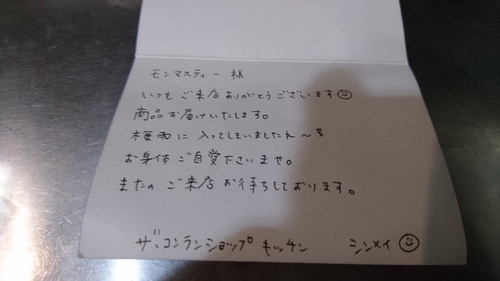 モンマスティー 様
いつも ご来店 ありがとう ございます☺
商品 お届けいたします。
梅雨に 入ってしまいましたね〜
お身体 ご自愛下さいませ。
またの ご来店 お待ちしております。
ザ・コンランショップ キッチン シンメイ ☺